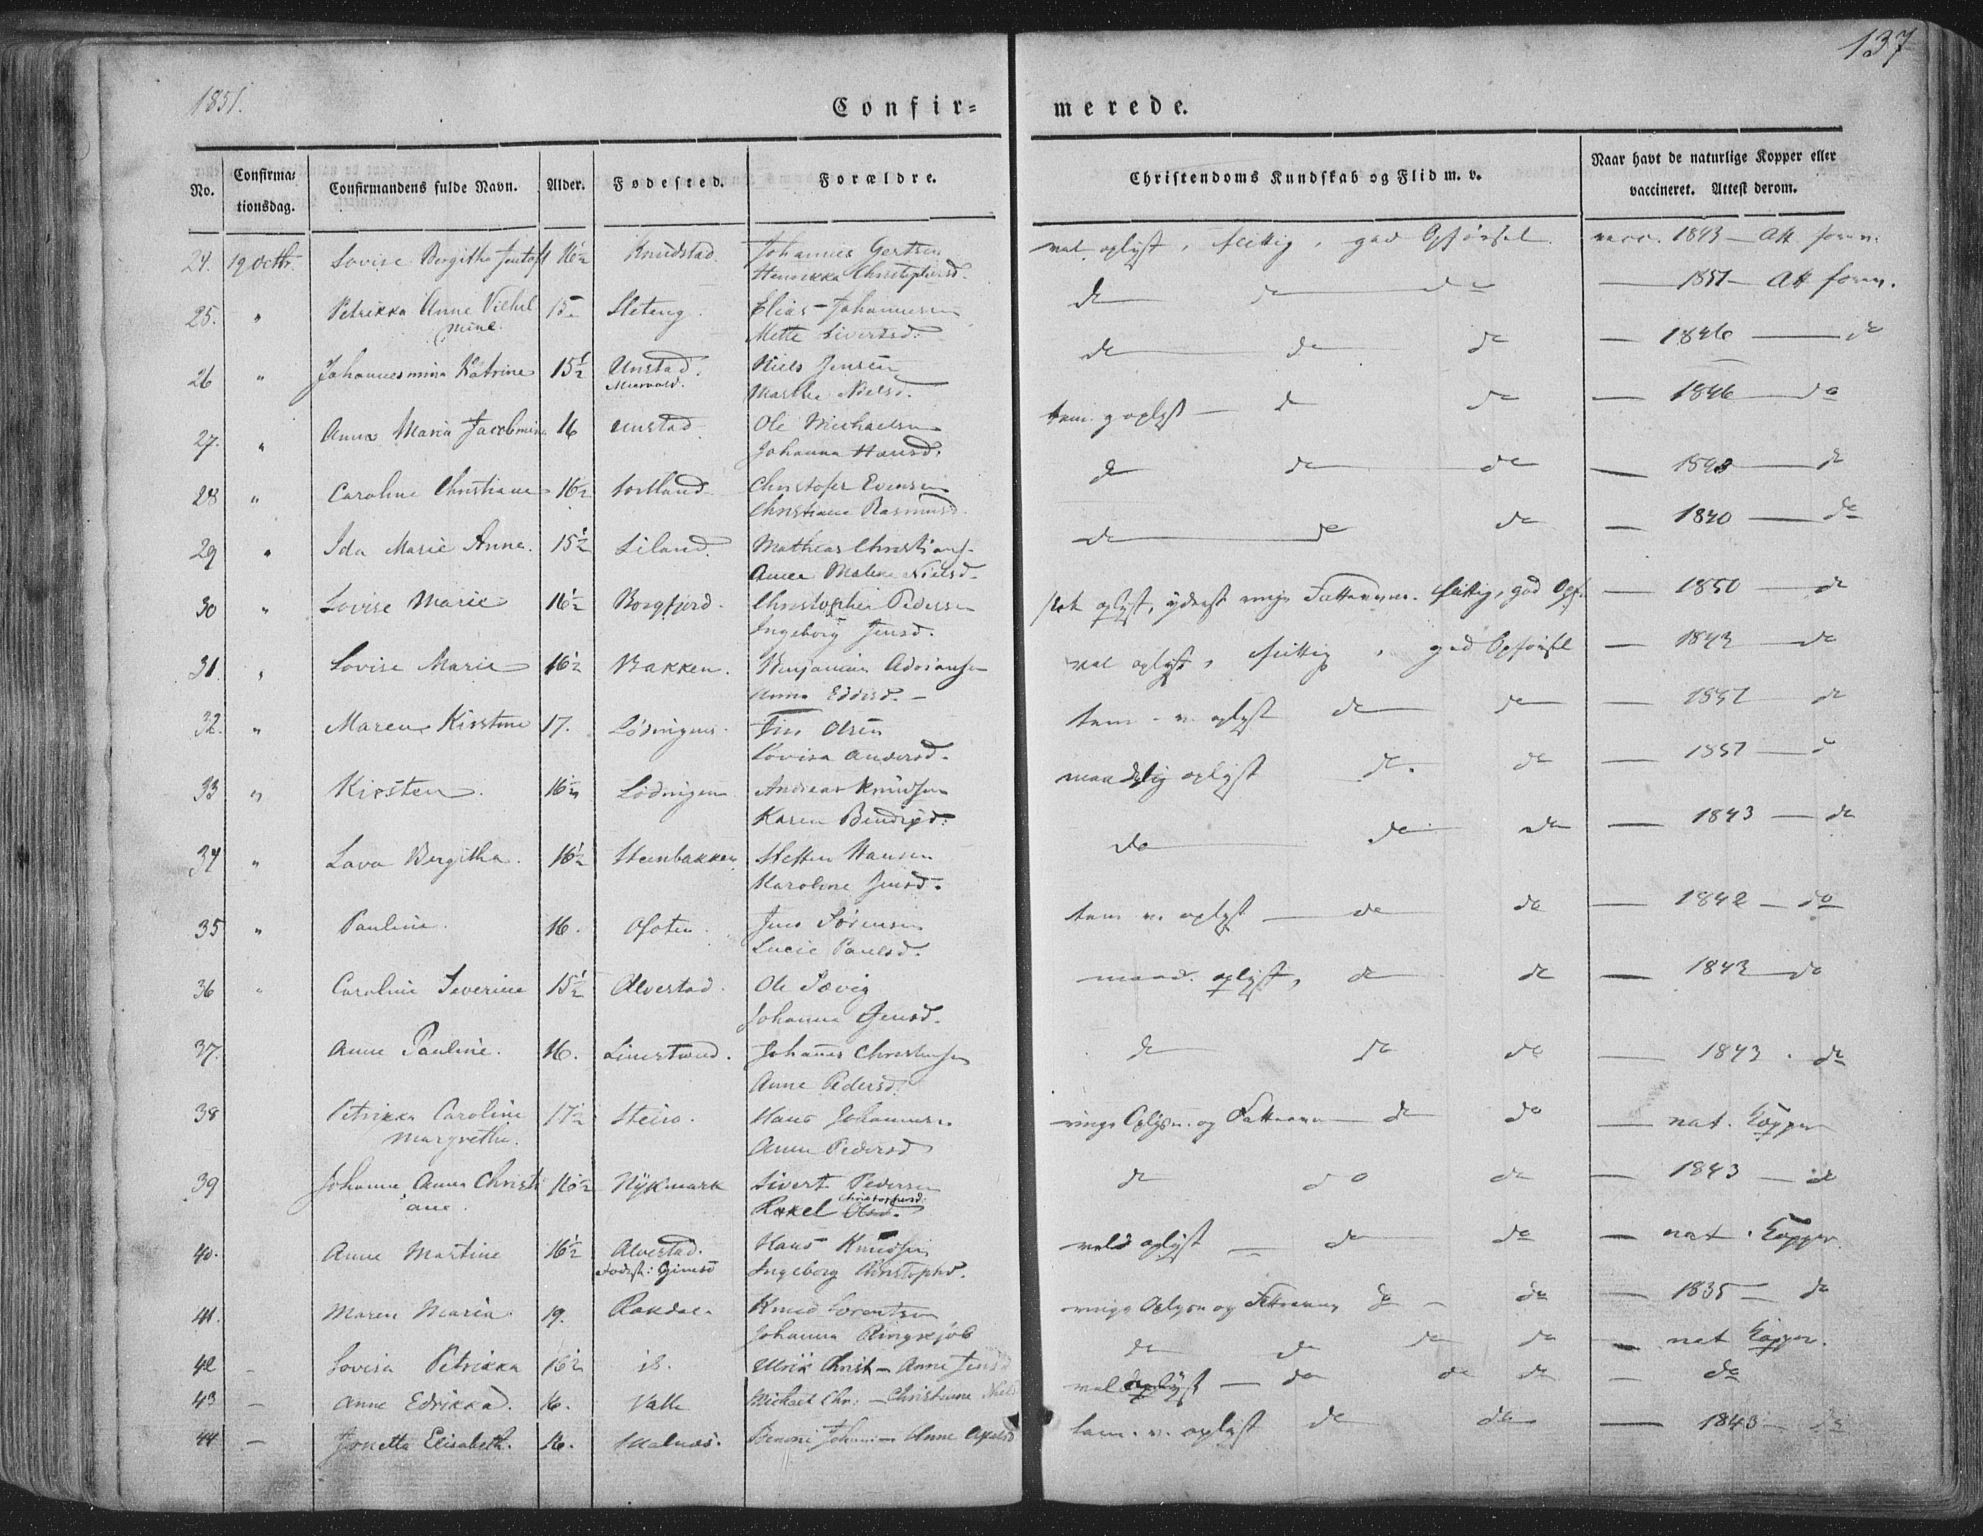 137
1851.
Confir=
merede.
No.
Confirma=
tionsdag.
Confirmandens fulde Navn.
Alder.
Fødested.
Forældre.
Christendoms Kundskab og Flid m. v.
Naar havt de naturlige Kopper eller
vaccineret. Attest derom.
24. 19 Octbr. Lovise Bergitha 16½ Knudstad. Johannes Gertsen vel oplyst, flittig, god Opførsel. vacc. 1843 – Att. forev.
Henrikka Christophersd.
25. " Petrikka Anne Vilhel 15 Steteng. Elias Johannesen do do do — 1851 – Att forev.
mine. Mette Sivertsd.
26 " Johannesmina Katrine 15½ Unstad. Niels Jensen do do do — 1846 — do
Marthe Nielsd.
27. " Anne Maria Jacobmine 16 Unstad. Ole Michaelsen tem. v oplyst — do do — 1846 — do
Johanna Hansd.
28 " Caroline Christiane 16½ Sortland Christofer Evensen do do do — do
Christiane Rasmusd.
29 " Ida Marie Anne. 15½ Liland. Mathias Christians. do do do — 1840 — do
Anne Malene Nielsd.
30 " Lovise Marie 16½ Borgfjord. Christopher Pedersen oplyst, yderst ringe Fatteevne. flittig, god Opf. — 1850 — do
Ingeborg Jensd.
31. " Lovise Marie 16½ Bakken. Benjamin Adriansen vel oplyst, flittig, god Opførsel — 1843 — do
Anna Eddisd. –
32. " Maren Kirstine 17. Lødingen. Olsen tem. v. oplyst do do — do
Lovisa Andersd.
33 " Kirsten. 16½ Lødingen Andreas Knudsen maadelig oplyst do. do — 1851 — do
Karen Bendixd.
34 " Lava Bergitha. 16½ Steinbakken Steffen Hansen do do do — 1843 — do
Karoline Jensd.
35 " Pauline. 16. Ofoten. Jens Sørensen tem v. oplyst — do do — 1842 — do
Lucie Paulsd.
36 " Caroline Severine 15½ Alvestad. Ole Sævig maad. oplyst, do do — 1843 — do
Johanna Jensd.
37. Anne Pauline. 16. Linestrand. Johannes Christensen do do do — 1843. do
Anne Pedersd.
38 Petrikka Caroline 17½ Steiro. Hans Johannesen ringe Oplysn. og Fatteevne — do do — nat. Kopper
Margrethe. Anne Pedersd
39 Johanne Anna Christi 16½ Nykmark Sivert Pedersen do do do — 1843 — do
ane. Rakel Christophersd.
40. Anne Martine 16½ Alvestad. Hans Knudsen vel oplyst — do do — nat. Kopper.
Fødest: Gimsø Ingeborg Christophd.
41. Maren Maria. 19. Rakdal. Knud Lorentzen ringe Oplysn og Fatteevne do – do — 1835 — do
Johanna Ringskjøb
42 – Lovisa Petrikka 16½ ib. Ulrik Christ – Anne Jensd do do do do — nat Kopper.
43 – Anne Edrikka. 16. Valle Michael Chr: – Christianne Niels vel oplyst — do do do — do
44 – Jonetta Elisabeth. 16. Skalnæs. Benoni Johan – Anne Axelsd tem. v. oplyst do do — 1843 – do